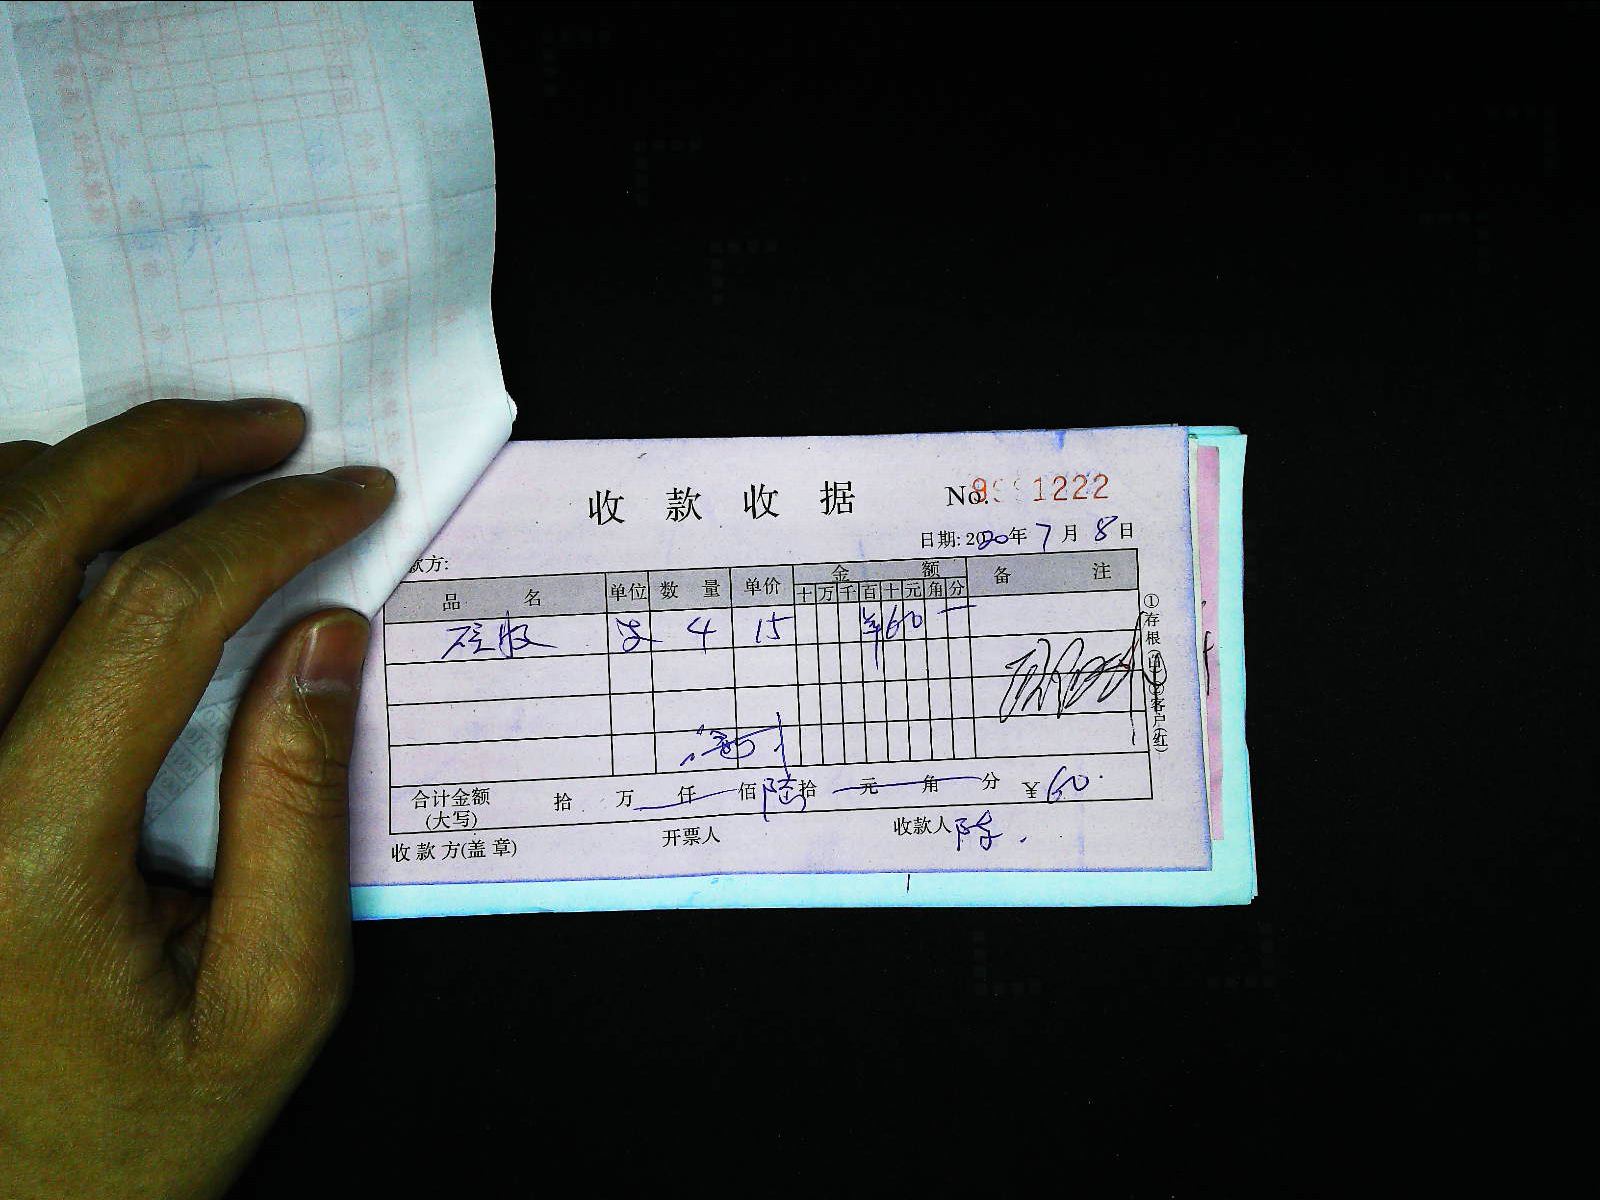 收款收据 No.9991222
日期: 2020年7月8日
款方:
品名 单位 数量 单价 金额 备注
十万千百十元角分
硅胶 支 4 15 ¥60
①存根(白)②客户(红)
合计金额(大写) 拾 万 仟 佰 陆拾 元 角 分 ¥60
收款方(盖章) 开票人 收款人